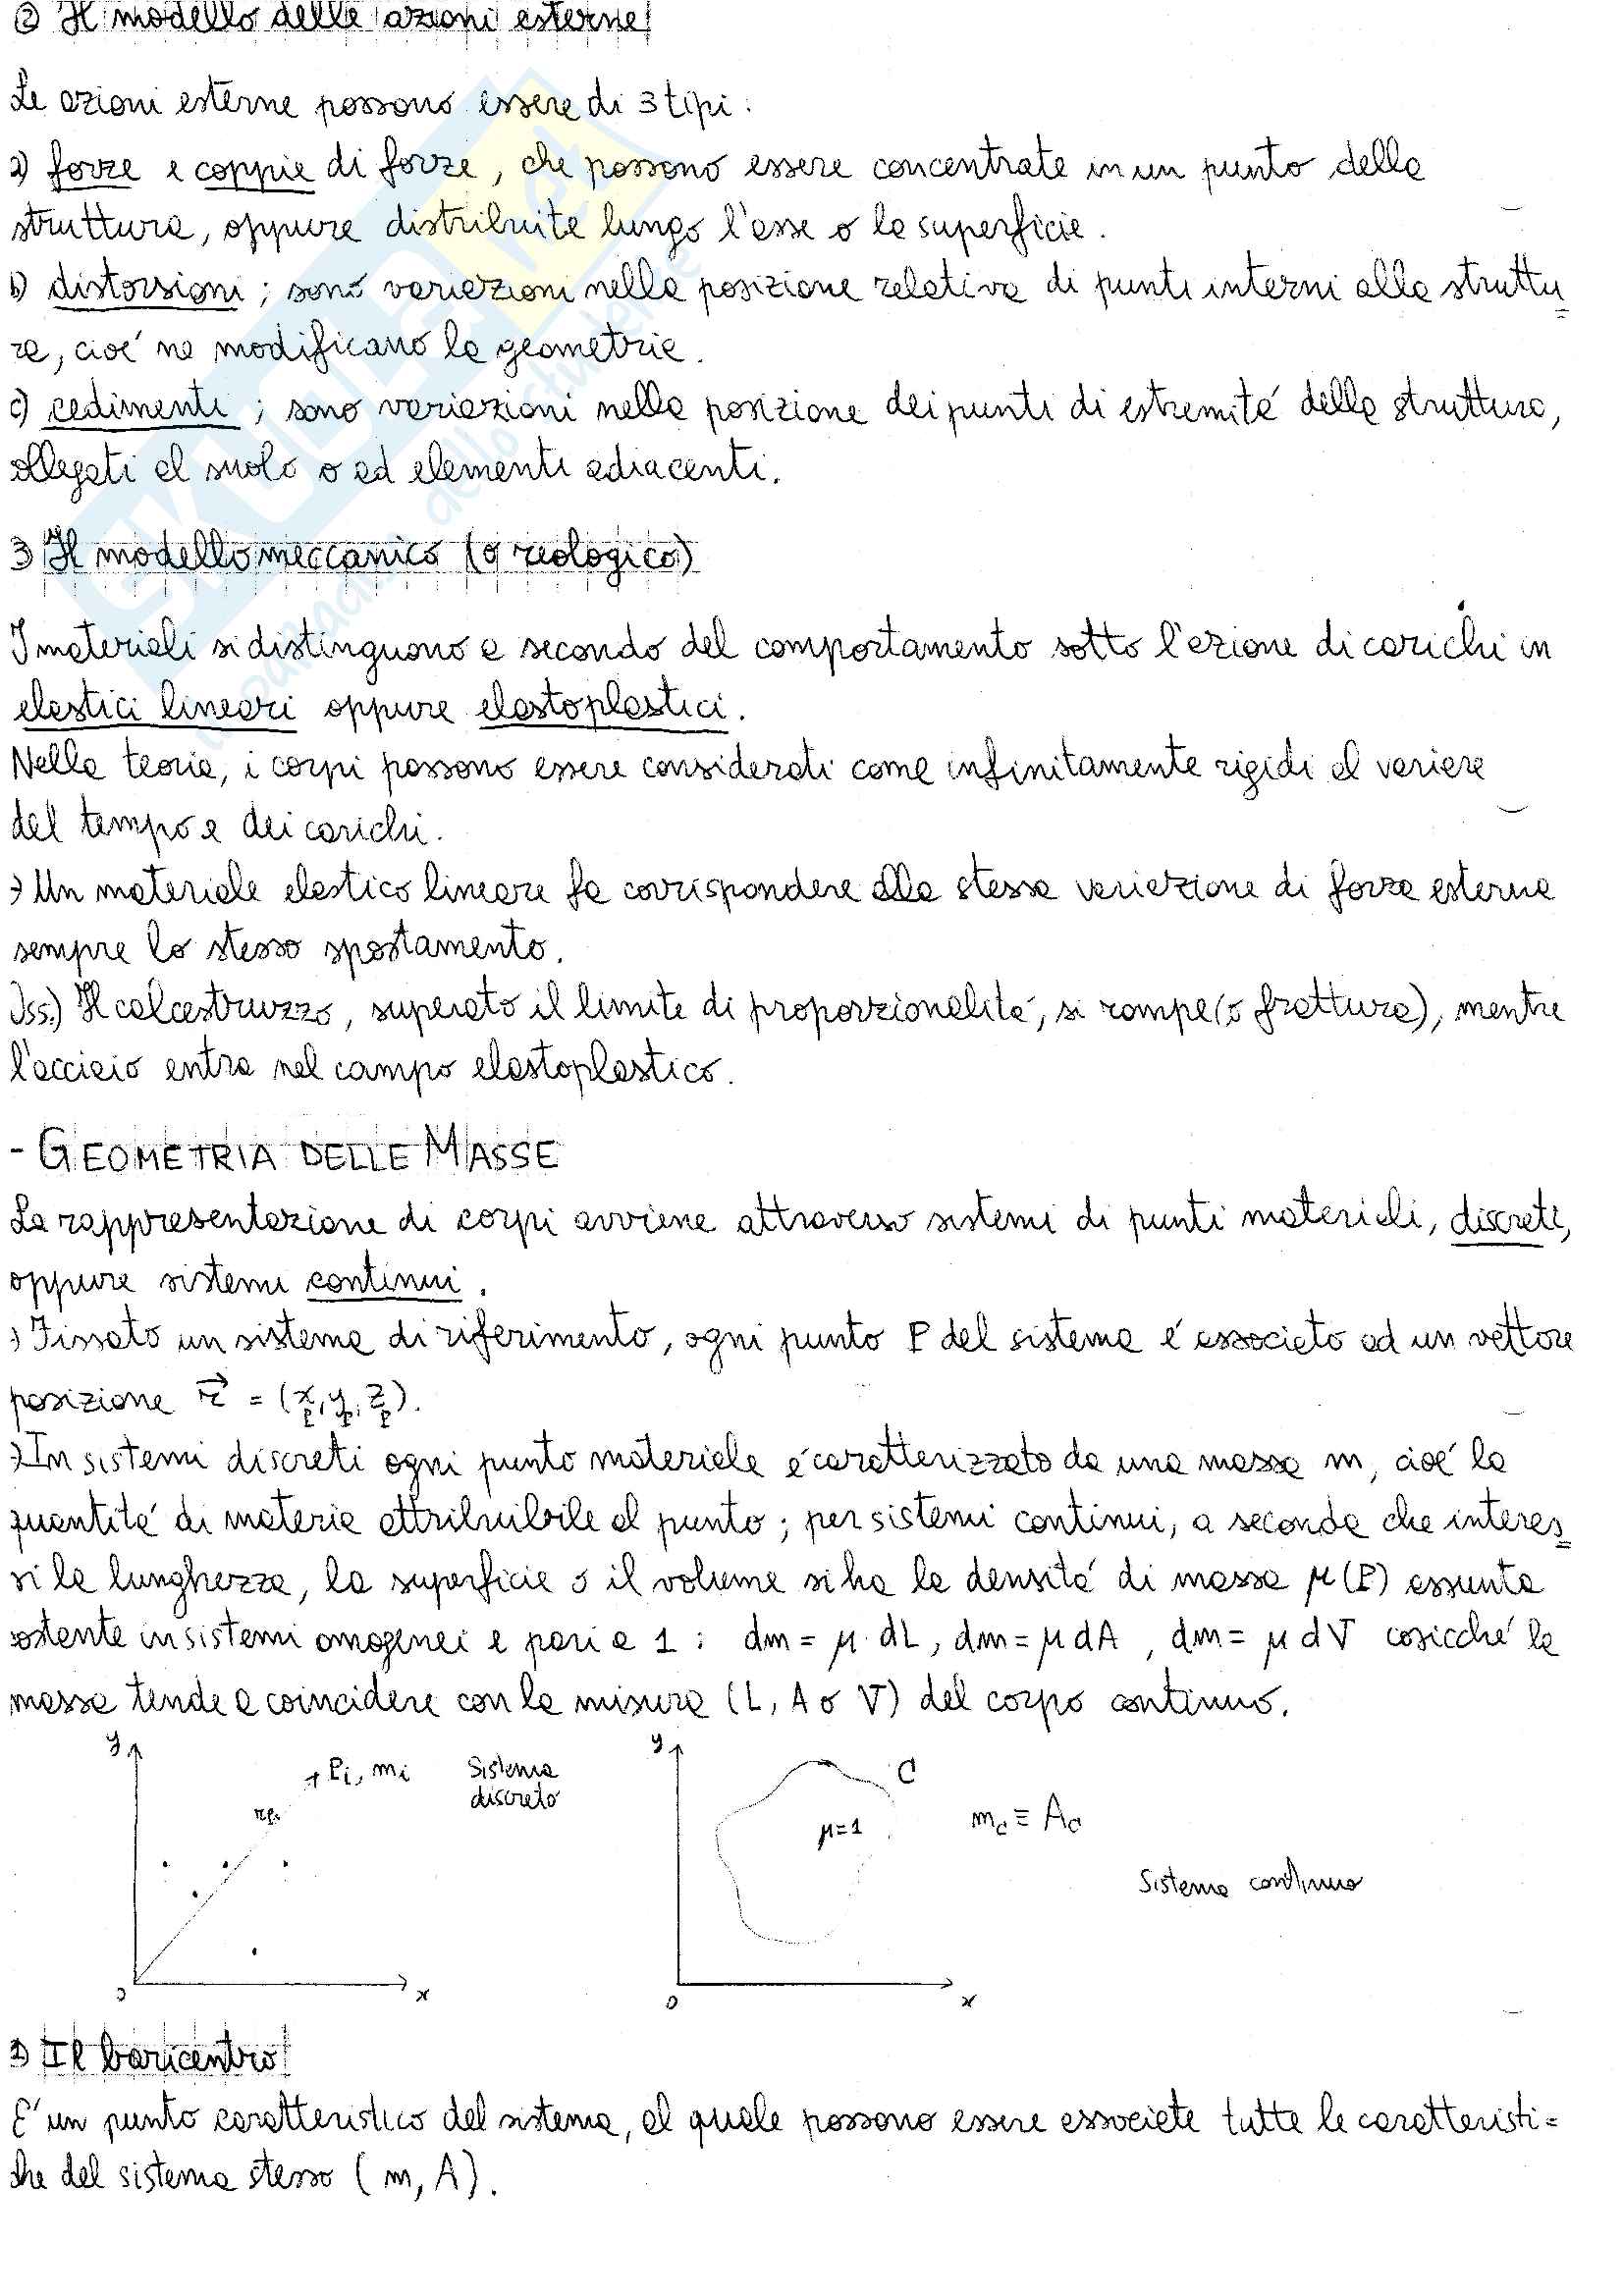 ② Il modello delle azioni esterne
Le azioni esterne possono essere di 3 tipi:
a) forze e coppie di forze, che possono essere concentrate in un punto della
struttura, oppure distribuite lungo l'asse o la superficie.
b) distorsioni; sono variazioni nella posizione relativa di punti interni alla struttu
ra, cioé ne modificano la geometria.
c) cedimenti; sono variazioni nella posizione dei punti di estremitá della struttura,
ollegati al suolo o ad elementi adiacenti.
3) Il modello meccanico (o reologico)
I materiali si distinguono a secondo del comportamento sotto l'azione di carichi in
elastici lineari oppure elastoplastici.
Nella teoria, i corpi possono essere considerati come infinitamente rigidi al variare
del tempo e dei carichi.
Un materiale elastico lineare fa corrispondere alla stessa variazione di forza esterna
sempre lo stesso spostamento.
Oss.) Il calcestruzzo, superato il limite di proporzionalitá, si rompe (o frattura), mentre
l'acciaio entra nel campo elastoplastico.
- GEOMETRIA DELLE MASSE
La rappresentazione di corpi avviene attraverso sistemi di punti materiali, discreti,
oppure sistemi continui.
Fissato un sistema di riferimento, ogni punto P del sistema é associato ad un vettore
posizione r⃗ = (x_P, y_P, z_P).
In sistemi discreti ogni punto materiale é caratterizzato da una massa m, cioé la
quantitá di materia attribuibile al punto; per sistemi continui, a seconda che interes
si la lunghezza, la superficie o il volume si ha la densitá di massa μ(P) assunta
ostante in sistemi omogenei e pari a 1: dm = μ·dL, dm = μdA, dm = μdV cosicché la
massa tende a coincidere con la misura (L, A o V) del corpo continuo.
y
P_i, m_i
Sistema
discreto
r_Pi
o
x
y
C
μ=1
m_C ≡ A_C
Sistema continuo
o
x
1) Il baricentro
E' un punto caratteristico del sistema, al quale possono essere associate tutte le caratteristi=
che del sistema stesso (m, A).